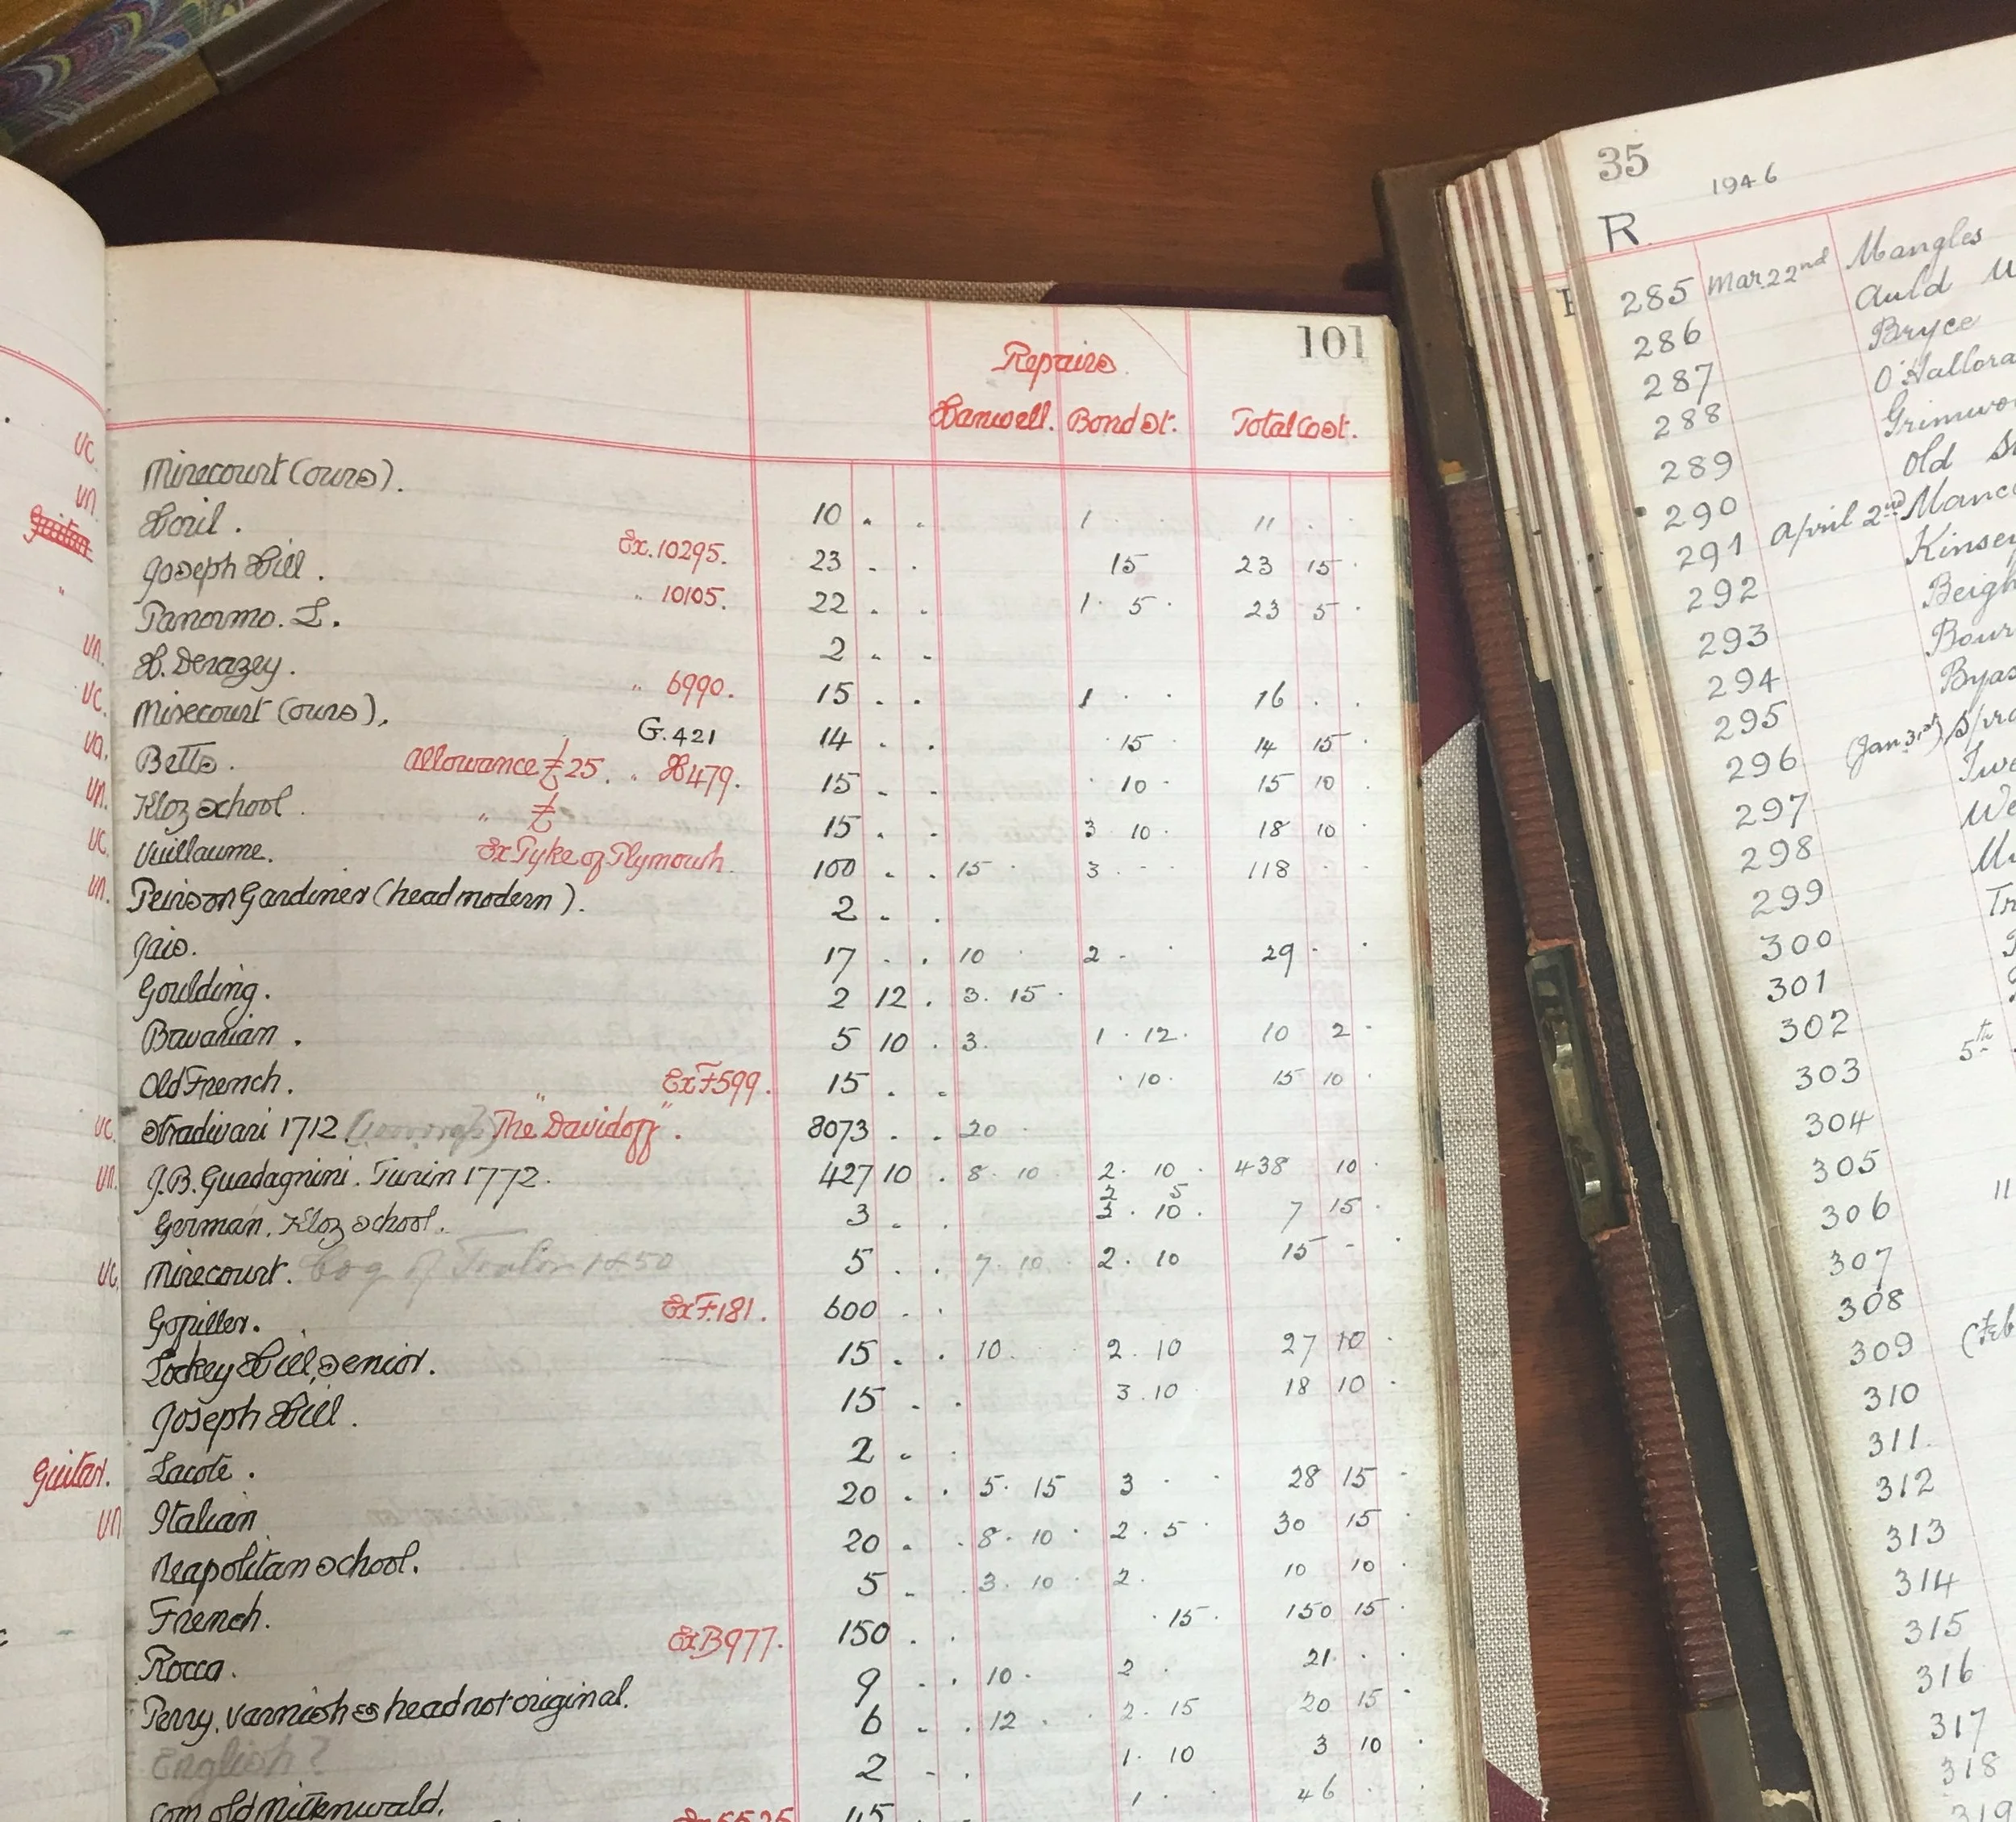 101
Repairs
Hanwell. Bond St. Total Cost.
vc. Mirecourt (ours). 10 . . 1 . . 11 . .
vn. Horil. Ex. 10295. 23 . . 15 23 15 .
Guitar Joseph Hill. " 10105. 22 . . 1 . 5 . 23 5 .
" Panormo. L. 2 . .
vn. H. Derazey. " 6990. 15 . . 1 . . 16 . .
vc. Mirecourt (ours). G.421 14 . . 15 . 14 15 .
va. Betts. allowance £25. " H479. 15 . . 10 . 15 10 .
vn. Kloz School. " £ 15 . . 3 10 . 18 10 .
vc. Vuillaume. Ex Pyke of Plymouth. 100 . . 15 . 3 . . 118 . .
vn. Peirson Gardiner (head modern). 2 . .
Jais. 17 . . 10 . 2 . . 29 . .
Goulding. 2 12 . 3. 15 .
Bavarian. 5 10 . 3. 1 . 12. 10 2 .
Old French. Ex F599. 15 . . . 10 . 15 10 .
vc. Stradivari 1712 The "Davidoff". 8073 . . 20 .
vn. J.B. Guadagnini. Turin 1772. 427 10 . 8. 10 2. 10 . 438 10 .
German. Kloz School. 3 . . 2 5 3 . 10 . 7 15 .
vc. Mirecourt. 1850 5 . . 7. 10 2. 10 15 -
Gofriller. Ex F.181. 600 . .
Lockey Hill, Senior. 15 . . 10. 2. 10 27 10 .
Joseph Hill. 15 . . 3.10 18 10 .
Guitar. Lacote. 2 . .
vn Italian 20 . . 5. 15 3 . . 28 15 .
Neapolitan School. 20 . . 8. 10 . 2. 5 . 30 15 .
French. 5 . . 3. 10 . 2. 10 10 .
Rocca. Ex B977. 150 . . . 15 . 150 15 .
Perry, varnish & head not original. 9 . . 10 . 2 . 21 . .
English? 6 . . 12 . . 2. 15 20 15 .
Com. old Mittenwald. 2 . . 1. 10 3 10 .
45 1 . 46 .
35
1946
R.
285 Mar. 22nd Mangles
286 Auld
287 Bryce
288 O'Hallora
289 Grimwo
290 Old
291 April 2nd Manc
292 Kinsey
293 Beigh
294 Bour
295 Byas
296 (Jan 31st) Spra
297 Twe
298 We
299
300 Tr
301
302
303 5th
304
305
306 11
307
308
309 (Feb
310
311.
312
313
314
315
316
317
318
319